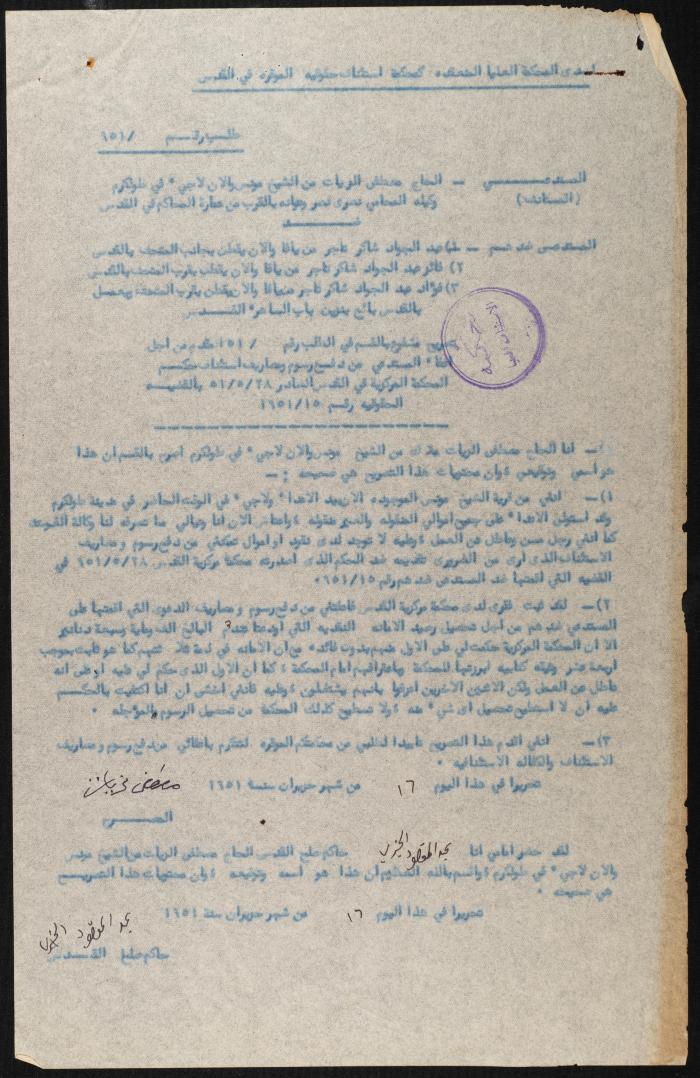 لدى المحكمة العليا المنعقدة كمحكمة استئناف حقوقية الموقرة في القدس
طلب رقم /٦٥١
المستدعي — الحاج مصطفى الزيات من الشيخ مونس والان لاجيء في طولكرم
(المستأنف) وكيله المحامي نصري نصر وعنوانه بالقرب من عمارة المحاكم في القدس
ضد
المستدعى ضدهم — ١) عبد الجواد شاكر تاجر من يافا والان يقطن بجانب المتحف بالقدس
٢) فائز عبد الجواد شاكر تاجر من يافا والان يقطن بقرب المتحف بالقدس
٣) فؤاد عبد الجواد شاكر تاجر من يافا والان يقطن بقرب المتحف ويعمل
بالقدس بائع بنزين باب الساهرة القدس
تصريح مشفوع بالقسم في الطلب رقم /٦٥١ مقدم من اجل
اعفاء المستدعي من دفع رسوم ومصاريف استئناف حكم
المحكمة المركزية في القدس الصادر ٥١/٥/٢٨ بالقضية
الحقوقية رقم ٦٥١/١٥
— انا الحاج مصطفى الزيات ملاك من الشيخ مونس والان لاجيء في طولكرم اصرح بالقسم ان هذا
هو اسمي وتوقيعي وان محتويات هذا التصريح هي صحيحة :—
١)— انني من قرية الشيخ مونس الموجودة الان بيد الاعداء ولاجيء في الوقت الحاضر في مدينة طولكرم
وقد استولى الاعداء على جميع اموالي المنقولة والغير منقولة واعتاش الان انا وعيالي مما تصرفه لنا وكالة الغوث
كما انني رجل مسن وعاطل عن العمل وعليه لا توجد لدى نقود او اموال تمكنني من دفع رسوم ومصاريف
الاستئناف الذى ارى من الضروري تقديمه ضد الحكم الذى اصدرته محكمة مركزية القدس ٦٥١/٥/٢٨ في
القضية التي اقمتها ضد المستدعى ضدهم رقم ٦٥١/١٥
٢)— لقد ثبت فقرى لدى محكمة مركزية القدس فاعفتني من دفع رسوم ومصاريف الدعوى التي اقمتها على
المستدعى ضدهم من اجل تحصيل رصيد الامانة النقدية التي اودعتها عندهم البالغ الف وماية وسبعة دنانير
الا ان المحكمة المركزية حكمت لي على الاول منهم بدون فائدة مع ان الامانة في ذمة ثلاثتهم كما هو ثابت بموجب
اربعة عشر وثيقة كتابية ابرزتها للمحكمة وباعترافهم امام المحكمة كما ان الاول الذى حكم لي عليه ادعى انه
عاطل عن العمل ولكن الاثنين الاخرين اعترفا بانهم يشتغلون وعليه فانني اخشى ان انا اكتفيت بالحكم
عليه ان لا استطيع تحصيل اى شيء منه ولا تستطيع كذلك المحكمة من تحصيل الرسوم والمؤجلة .
٣)— انني اقدم هذا التصريح تأييدا لطلبي من محكمتكم الموقرة لتتكرم باعفائي من دفع رسوم ومصاريف
الاستئناف والكفالة الاستئنافية .
تحريرا في هذا اليوم ١٦ من شهر حزيران سنة ١٩٥١
المصرح
لقد حضر امامي انا عبد المقصود الخيري حاكم صلح القدس الحاج مصطفى الزيات من الشيخ مونس
والان لاجيء في طولكرم واقسم بالله العظيم ان هذا هو اسمه وتوقيعه وان محتويات هذا التصريح
هي صحيحة .
تحريرا في هذا اليوم ١٦ من شهر حزيران سنة ١٩٥١
عبد المقصود الخيري
حاكم صلح القدس